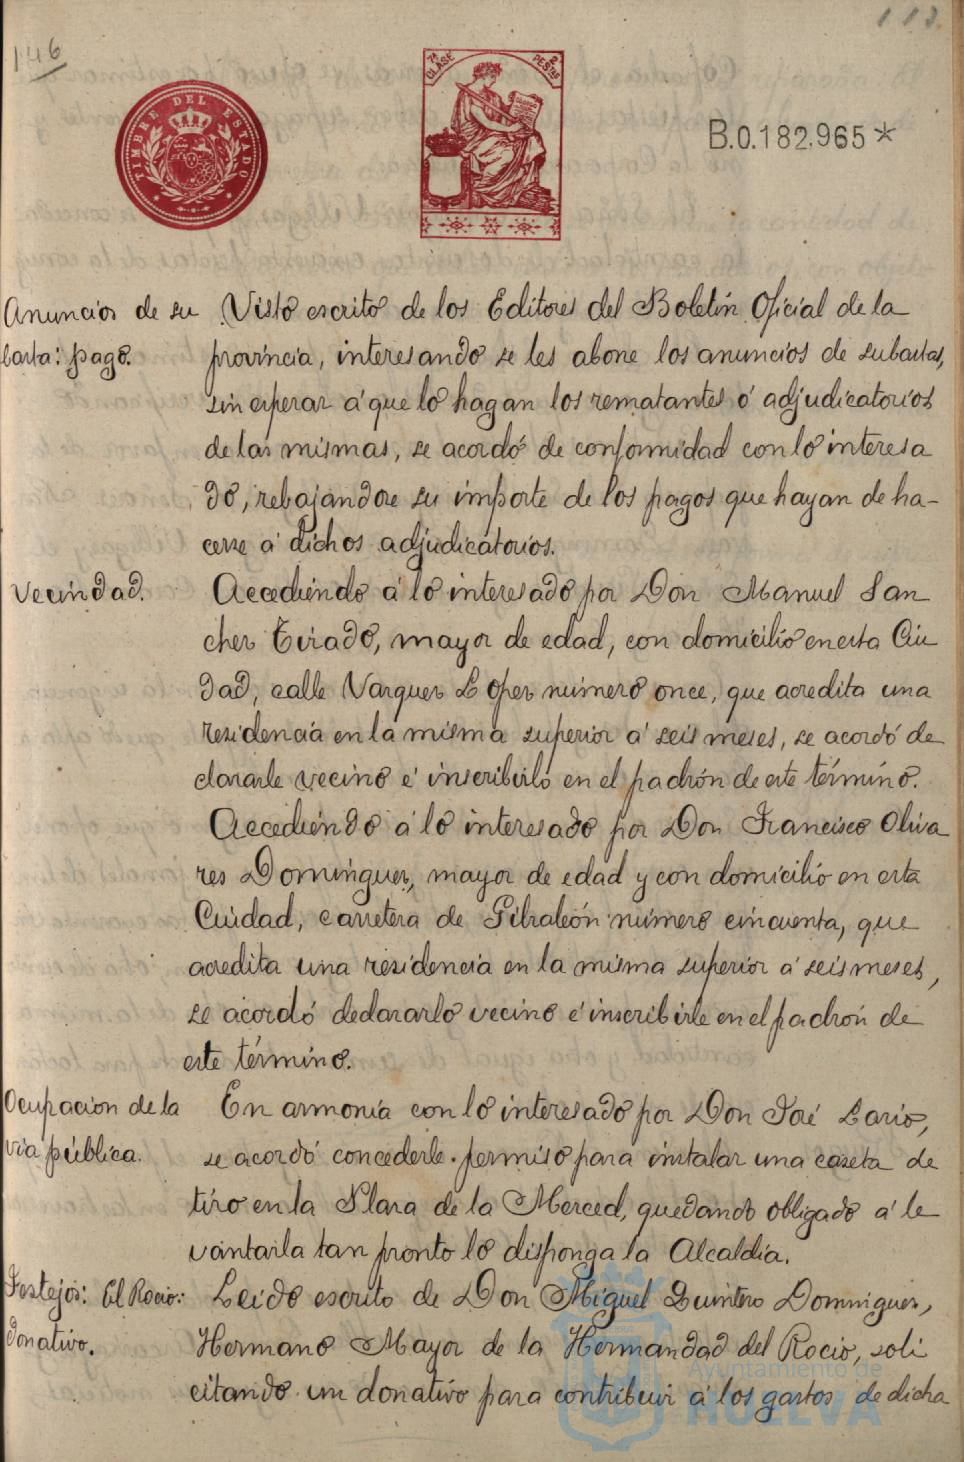 146
113.
TIMBRE DEL ESTADO
7ª CLASE
2 PESETAS
B.0.182.965*
Anuncios de su
basta: pago.
Visto escrito de los Editores del Boletín Oficial de la
provincia, interesando se les abone los anuncios de subastas,
sin esperar á que lo hagan los rematantes ó adjudicatorios
de las mismas, se acordó de conformidad con lo interesa
do, rebajandose su importe de los pagos que hayan de ha-
cerse á dichos adjudicatorios.
Vecindad.
Accediendo á lo interesado por Don Manuel San
chez Tirado, mayor de edad, con domicilio en esta Ciu
dad, calle Vazquez Lopez número once, que acredita una
residencia en la misma superior á seis meses, se acordó de
clararle vecino é inscribirlo en el padrón de este término.
Accediendo á lo interesado por Don Francisco Oliva
res Dominguez, mayor de edad y con domicilio en esta
Cuidad, carretera de Gibraleón número cincuenta, que
acredita una residencia en la misma superior á seis meses,
se acordó declararlo vecino é inscribirle en el padrón de
este término.
Ocupación de la
via pública.
En armonía con lo interesado por Don José Lario,
se acordó concederle permiso para instalar una caseta de
tiro en la Plaza de la Merced, quedando obligado á le
vantarla tan pronto lo disponga la Alcaldía.
Festejos: El Rocio:
donativo.
Leido escrito de Don Miguel Quintero Dominguez,
Hermano Mayor de la Hermandad del Rocio, soli
citando un donativo para contribuir á los gastos de dicha
Ayuntamiento de
HUELVA